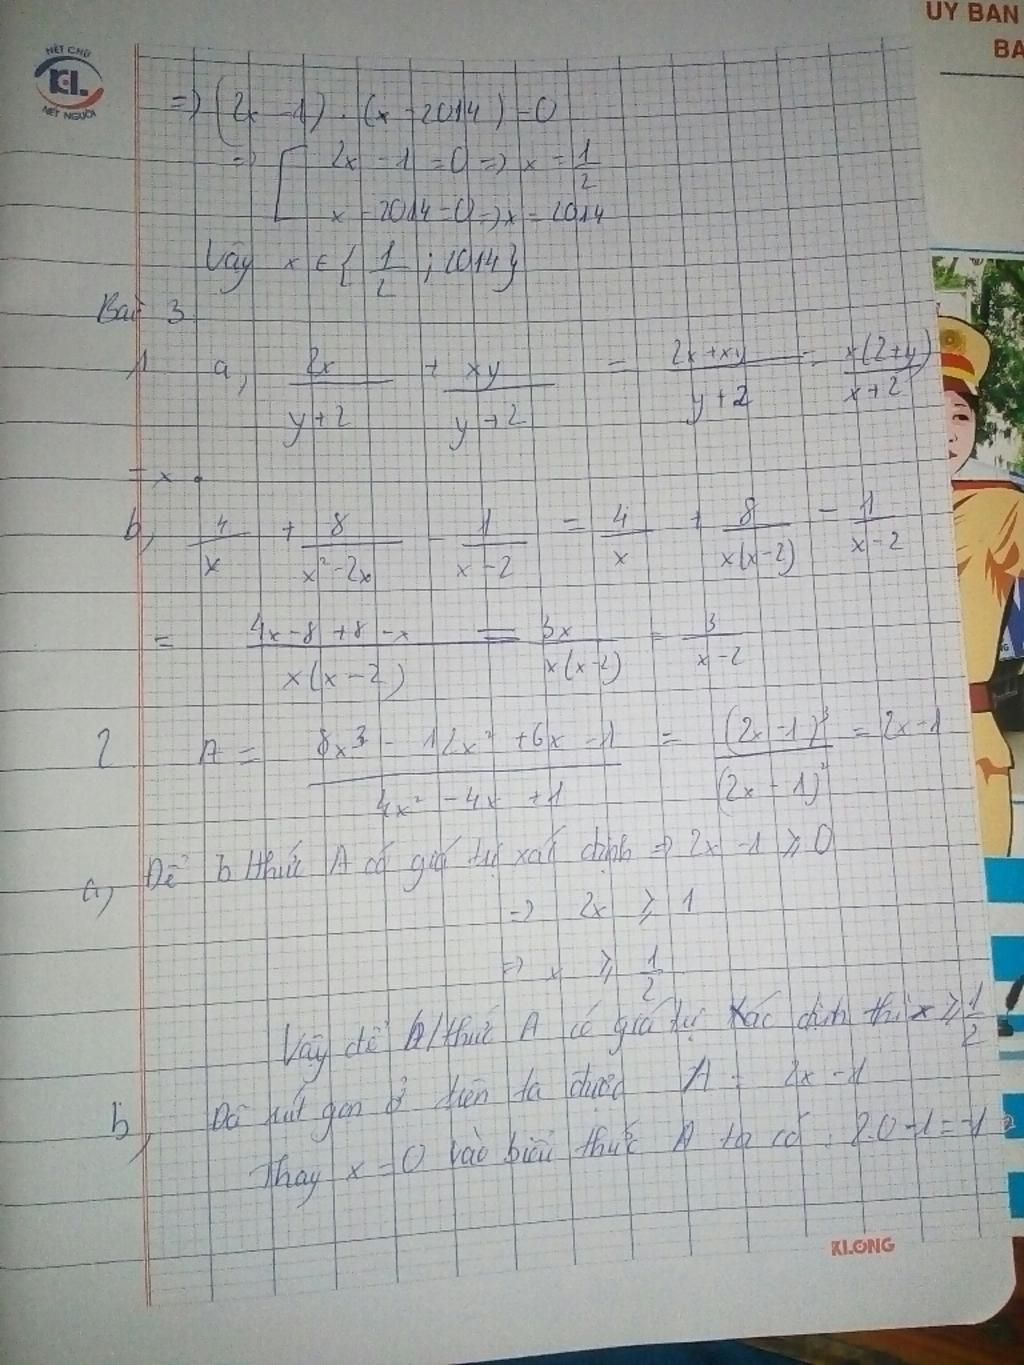 UỶ BAN
BA
NÉT CHỮ
KL
NẾT NGƯỜI
=> (2x - 1) . (x - 2014) = 0
=> [ 2x - 1 = 0 => x = 1/2
x - 2014 = 0 => x = 2014
Vậy x ∈ { 1/2 ; 2014 }
Bài 3
1 a, 2x/(y+2) + xy/(y+2) = (2x+xy)/(y+2) = x(2+y)/(x+2)
= x .
b, 4/x + 8/(x² - 2x) - 1/(x - 2) = 4/x + 8/(x(x-2)) - 1/(x-2)
= (4x - 8 + 8 - x)/(x(x - 2)) = 3x/(x(x-2)) = 3/(x-2)
2 A = (8x³ - 12x² + 6x - 1)/(4x² - 4x + 1) = (2x - 1)³/(2x - 1)² = 2x - 1
a, Để b thức A có giá trị xác định => 2x - 1 ⩾ 0
=> 2x ⩾ 1
=> x ⩾ 1/2
Vậy để b/thức A có giá trị xác định thì x ⩾ 1/2
b, Đã rút gọn ở trên ta được A = 2x - 1
Thay x = 0 vào biểu thức A ta có : 2.0 - 1 = -1
KLONG